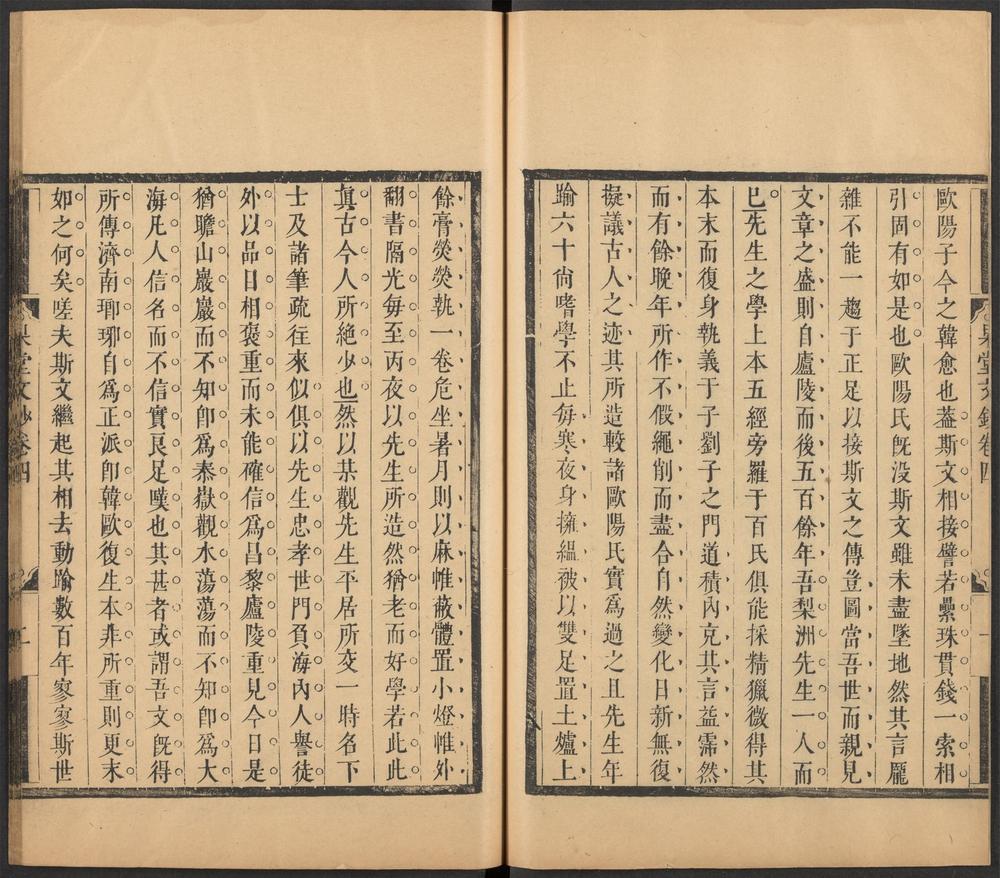 歐陽子今之韓愈也葢斯文相接譬若纍珠貫錢一索相
引固有如是也歐陽氏旣没斯文雖未盡墜地然其言龎
雜不能一趨于正足以接斯文之傳豈圖當吾世而親見
文章之盛則自廬陵而後五百餘年吾梨洲先生一人而
巳先生之學上本五經旁羅于百氏俱能採精獵微得其
本末而復身執義于子劉子之門道積內克其言益霈然
而有餘晚年所作不假繩削而盡合自然變化日新無復
擬議古人之迹其所造較諸歐陽氏實爲過之且先生年
踰六十尙嗜學不止每寒夜身擁縕被以雙足置土爐上
果堂文鈔卷四
一
餘膏熒熒執一卷危坐暑月則以麻帷蔽體置小燈帷外
翻書隔光每至丙夜以先生所造然猶老而好學若此此
眞古今人所絶少也然以某觀先生平居所交一時名下
士及諸筆疏往來似俱以先生忠孝世門負海內人譽徒
外以品日相褒重而未能確信爲昌黎廬陵重見今日是
猶瞻山巖巖而不知卽爲泰嶽觀水蕩蕩而不知卽爲大
海凡人信名而不信實良足嘆也其甚者或謂吾文旣得
所傳濟南瑯琊自爲正派卽韓歐復生本非所重則更末
如之何矣嗟夫斯文繼起其相去動踰數百年寥寥斯世
果堂文鈔卷四
二